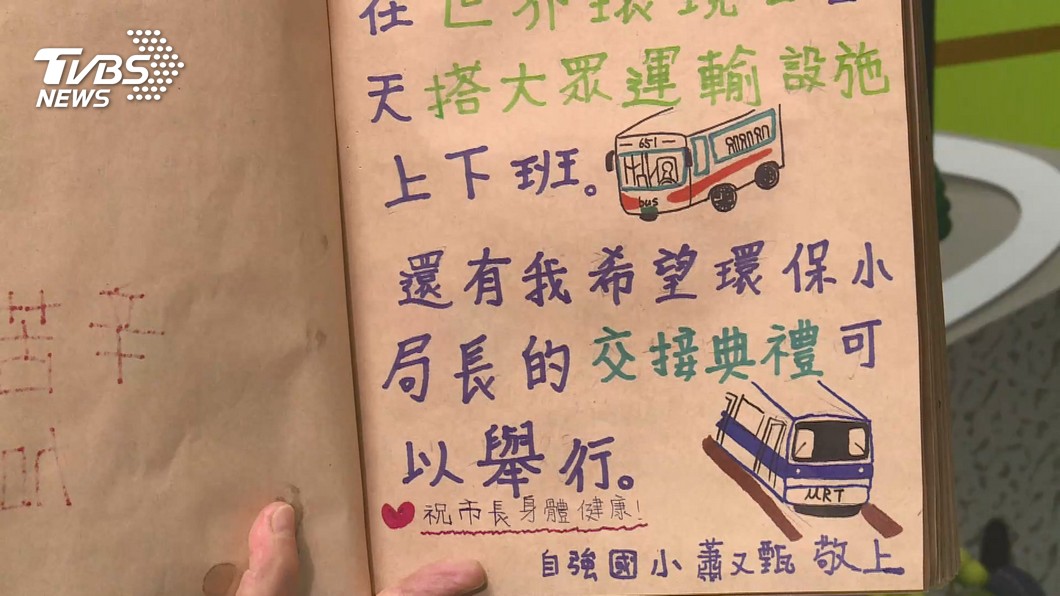 TVBS
NEWS
苦辛
在世界環境
天搭大眾運輸設施
上下班。
651
bus
還有我希望環保小
局長的交接典禮可
以舉行。
MRT
祝市長身體健康!
自強國小蕭又甄敬上